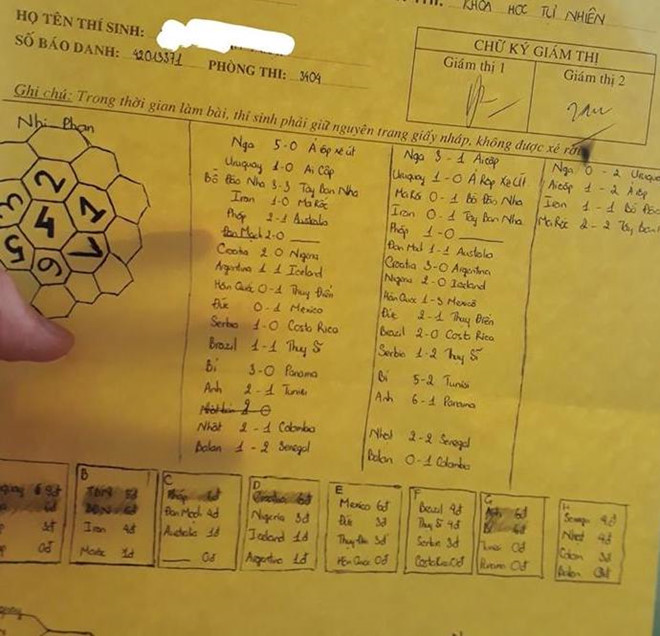 THI: KHOA HỌC TỰ NHIÊN
HỌ TÊN THÍ SINH:
SỐ BÁO DANH: 42013371 PHÒNG THI: 3404
CHỮ KÝ GIÁM THỊ
Giám thị 1 Giám thị 2
Ghi chú: Trong thời gian làm bài, thí sinh phải giữ nguyên trang giấy nháp, không được xé rời
Nhị Phan
2
3 1
4
5 7
6
Nga 5-0 Ả óp xê út
Uruguay 1-0 Ai Cập
Bồ Đào Nha 3-3 Tây Ban Nha
Iran 1-0 Ma Rốc
Pháp 2-1 Australa
Đan Mạch 2-0
Croatia 2 0 Nigeria
Argentina 1 1 Iceland
Hàn Quốc 0-1 Thụy Điển
Đức 0-1 Mexico
Serbia 1-0 Costa Rica
Brazil 1-1 Thụy Sĩ
Bỉ 3-0 Panama
Anh 2-1 Tunisi
Nhật 2-1 Colombia
Balan 1-2 Senegal
Nga 3-1 Aicập
Uruguay 1-0 A Rập Xê Út
Ma Rốc 0-1 Bồ Đào Nha
Iran 0-1 Tây Ban Nha
Pháp 1-0
Đan Mạch 1-1 Australa
Croatia 3-0 Argentina
Nigeria 2-0 Iceland
Hàn Quốc 1-3 Mexico
Đức 2-1 Thụy Điển
Brazil 2-0 Costa Rica
Serbia 1-2 Thụy Sĩ
Bỉ 5-2 Tunisi
Anh 6-1 Panama
Nhật 2-2 Senegal
Balan 0-1 Colombia
Nga 0-2 Urugua
Aicập 1-2 Ả
Iran 1-1 Bồ Đào
Ma Rốc 2-2 Tây Ban
9đ
6đ
3đ
0đ
B
TBN 5đ
BĐN 5đ
Iran 4đ
Maroc 1đ
C
Pháp 6đ
Đan Mạch 4đ
Australa 1đ
0đ
D
Croatia 6đ
Nigeria 3đ
Iceland 1đ
Argentina 1đ
E
Mexico 6đ
Đức 3đ
Thụy Điển 3đ
Hàn Quốc 0đ
F
Brazil 4đ
Thụy Sĩ 4đ
Serbia 3đ
Costa Rica 0đ
G
Anh 6đ
Bỉ 6đ
Tunisi 0đ
Panama 0đ
H
Senegal 4đ
Nhật 4đ
Colom 3đ
Balan 0đ